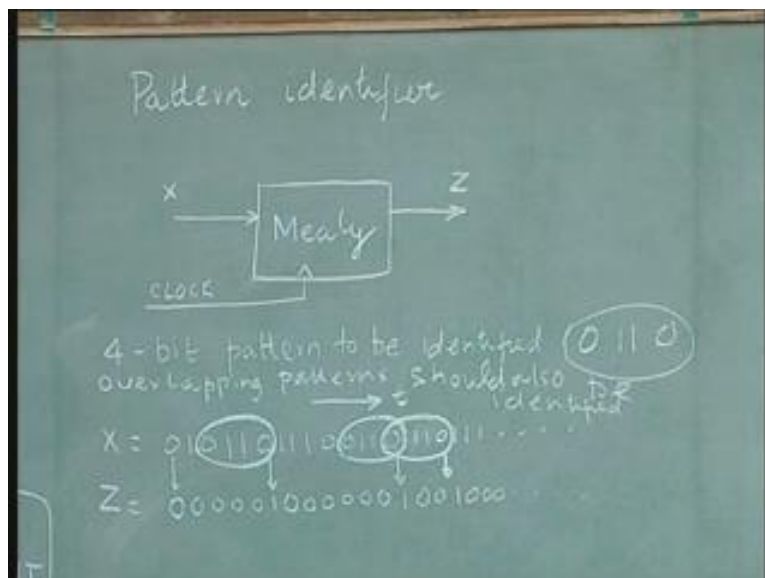 Pattern identifier
X
Z
Mealy
CLOCK
4-bit pattern to be identified 0110
overlapping patterns should also be
identified
X = 01011011100110110111.....
Z = 00000100000001001000.....